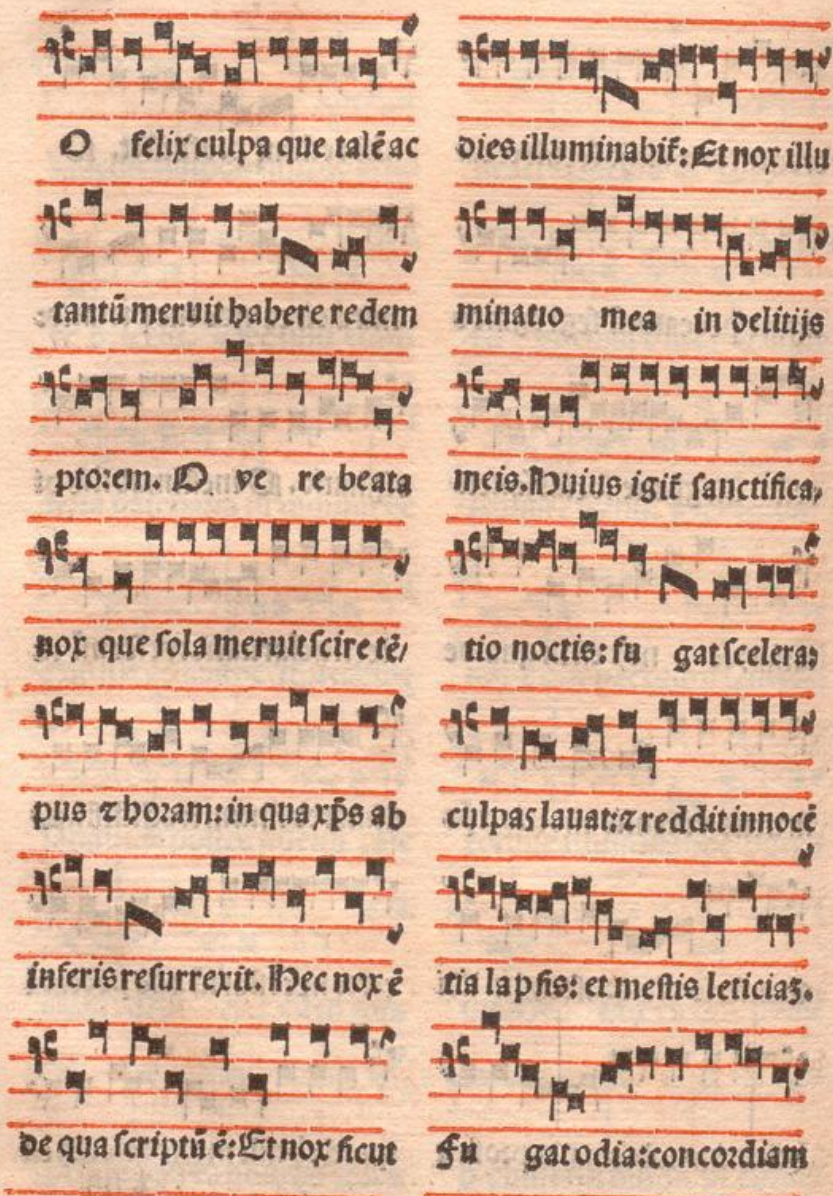 O felix culpa que talē ac
tantū meruit habere redem
ptorem. O ve re beata
nox que sola meruit scire tē/
pus ⁊ horam: in qua xp̄s ab
inferis resurrexit. Hec nox ē
de qua scriptū ē: Et nox sicut
dies illuminabit̄: Et nox illu
minatio mea in delitijs
meis. Huius igit̄ sanctifica/
tio noctis: fu gat scelera:
culpas lauat: ⁊ reddit innocē
tia lapsis: et mestis leticiaꝫ.
Fu gat odia: concordiam